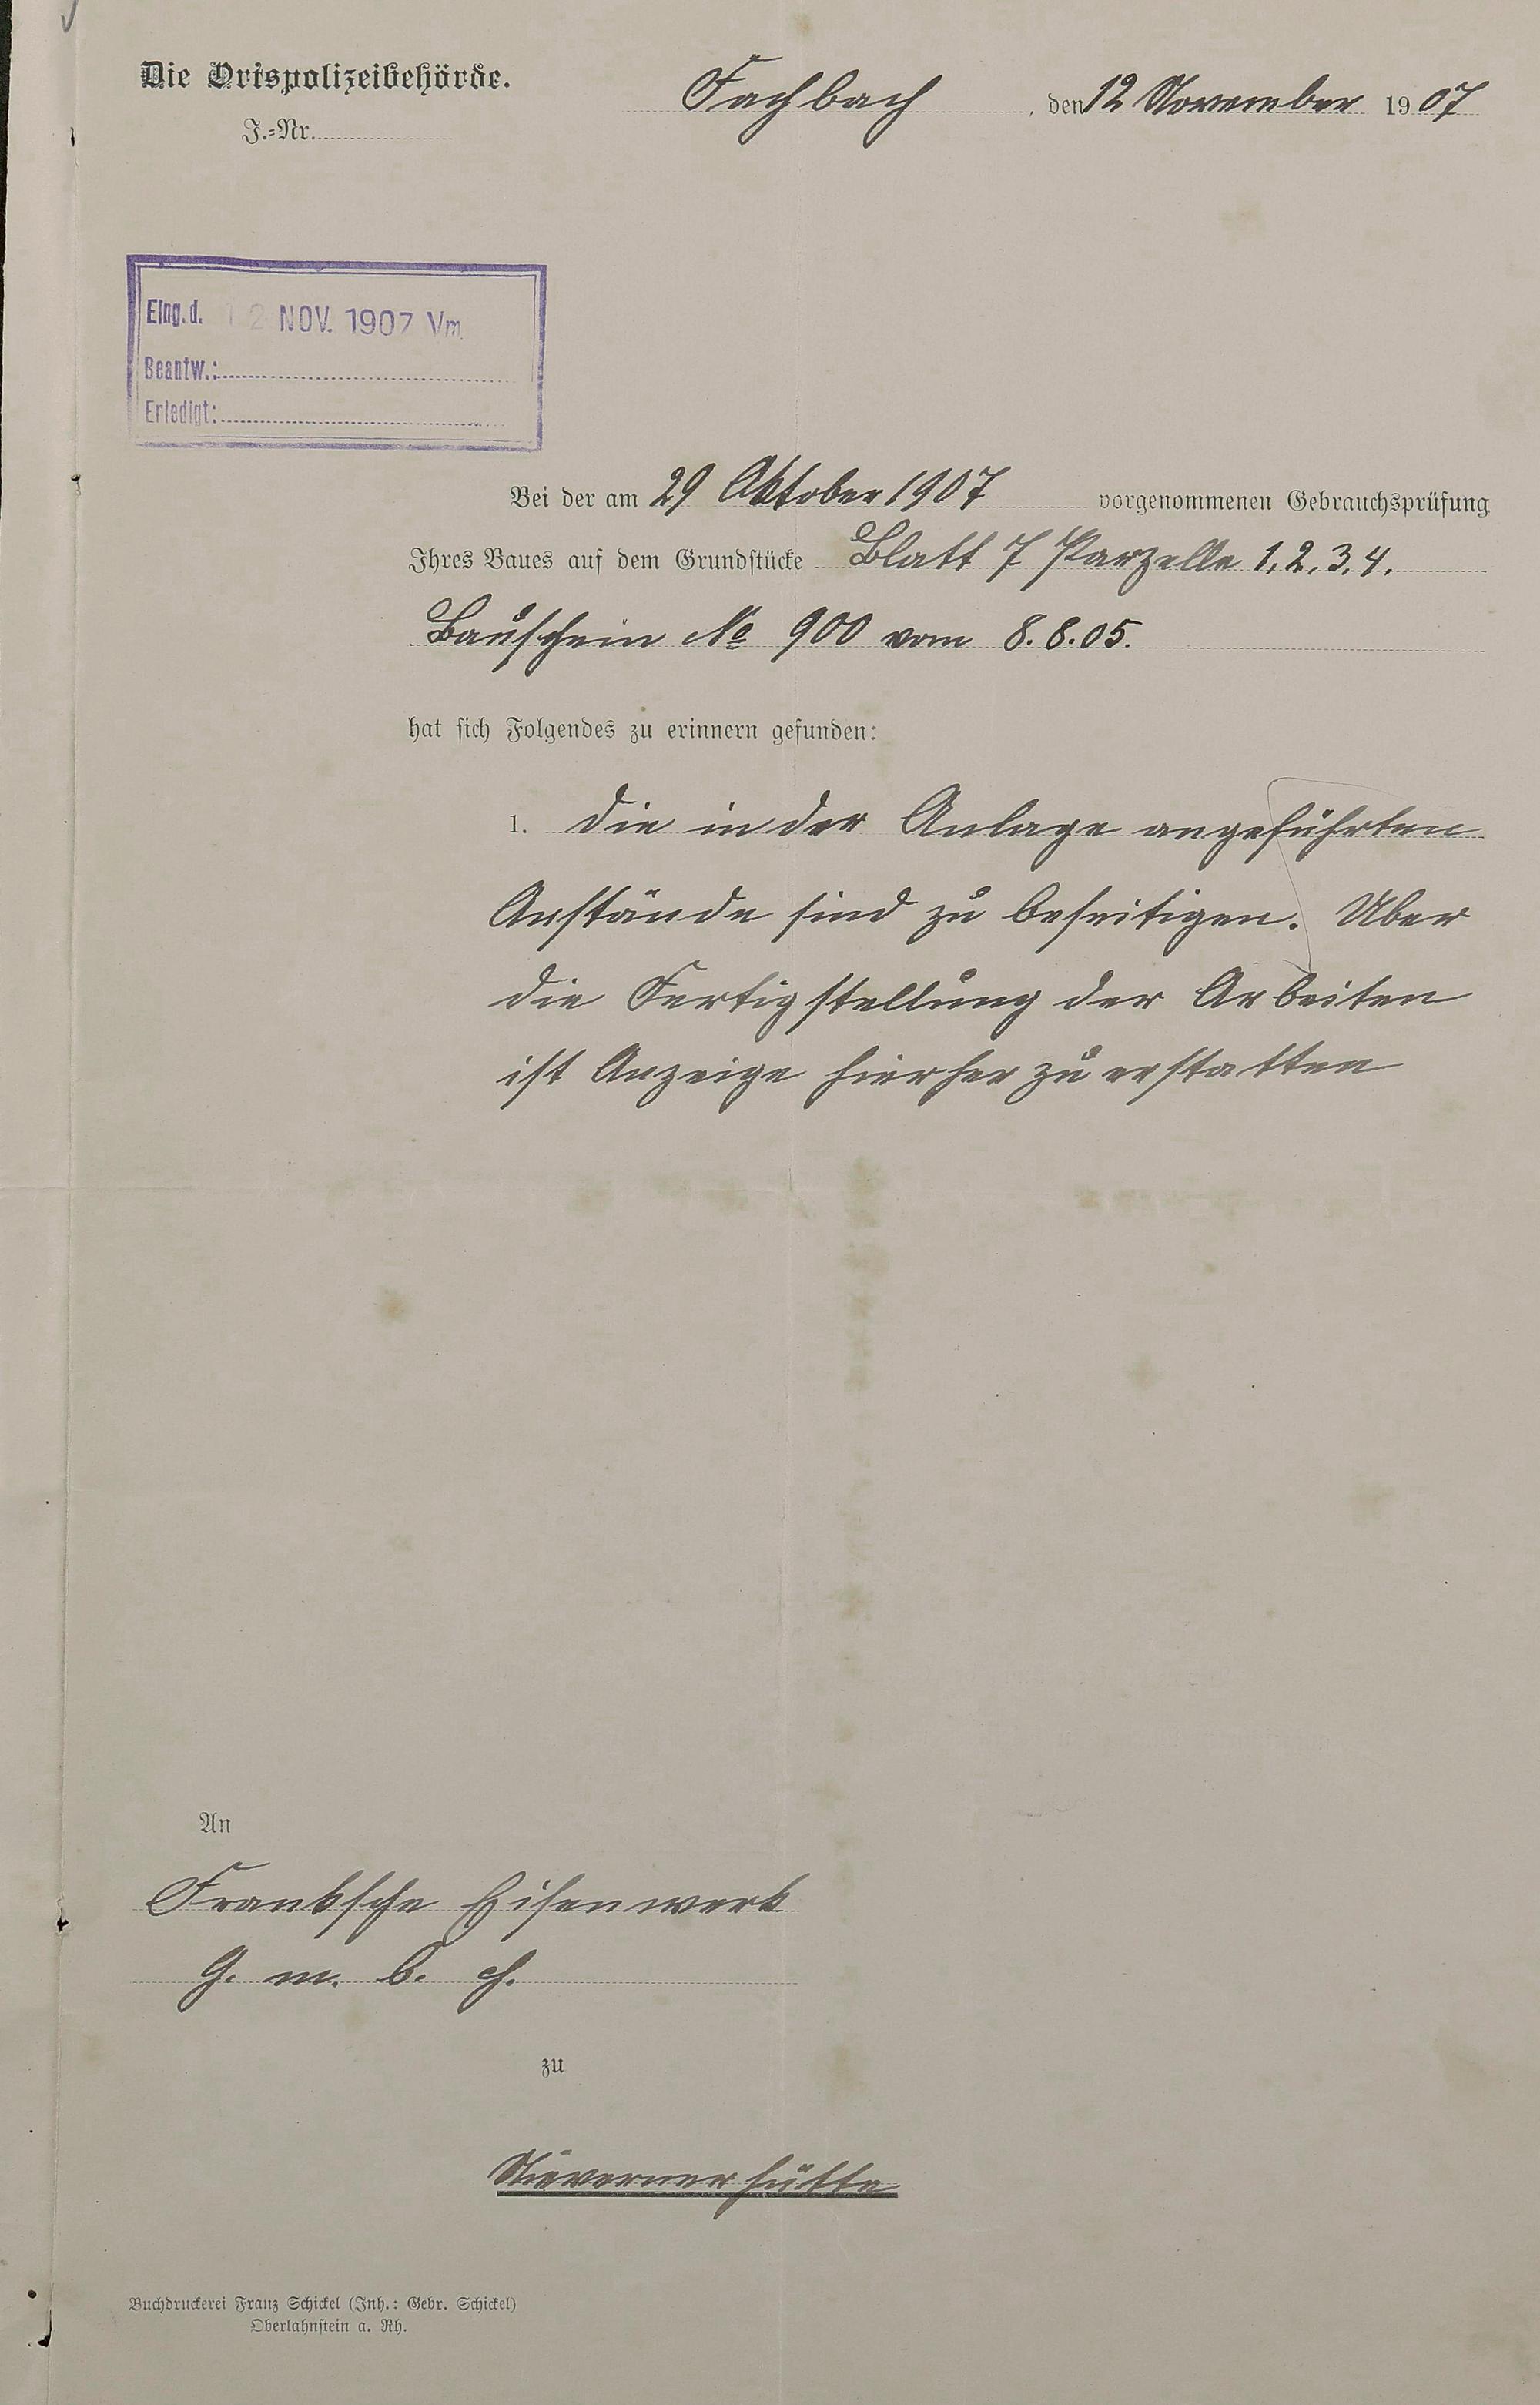 Die Ortspolizeibehörde.
Fachbach, den 12 November 1907
J.-Nr.
Eing. d. 12 NOV. 1907 Vm.
Beantw.:
Erledigt:
Bei der am 29 Oktober 1907 vorgenommenen Gebrauchsprüfung
Ihres Baues auf dem Grundstücke Blatt 7 Parzelle 1, 2, 3, 4.
Bauschein No 900 vom 8.8.05.
hat sich Folgendes zu erinnern gefunden:
1. die in der Anlage angeführten
Anstände sind zu beseitigen. Uber
die Fertigstellung der Arbeiten
ist Anzeige hierher zu erstatten
An
Franksche Eisenwerk
G. m. b. H.
zu
Nievernerhütte
Buchdruckerei Franz Schickel (Inh.: Gebr. Schickel)
Oberlahnstein a. Rh.